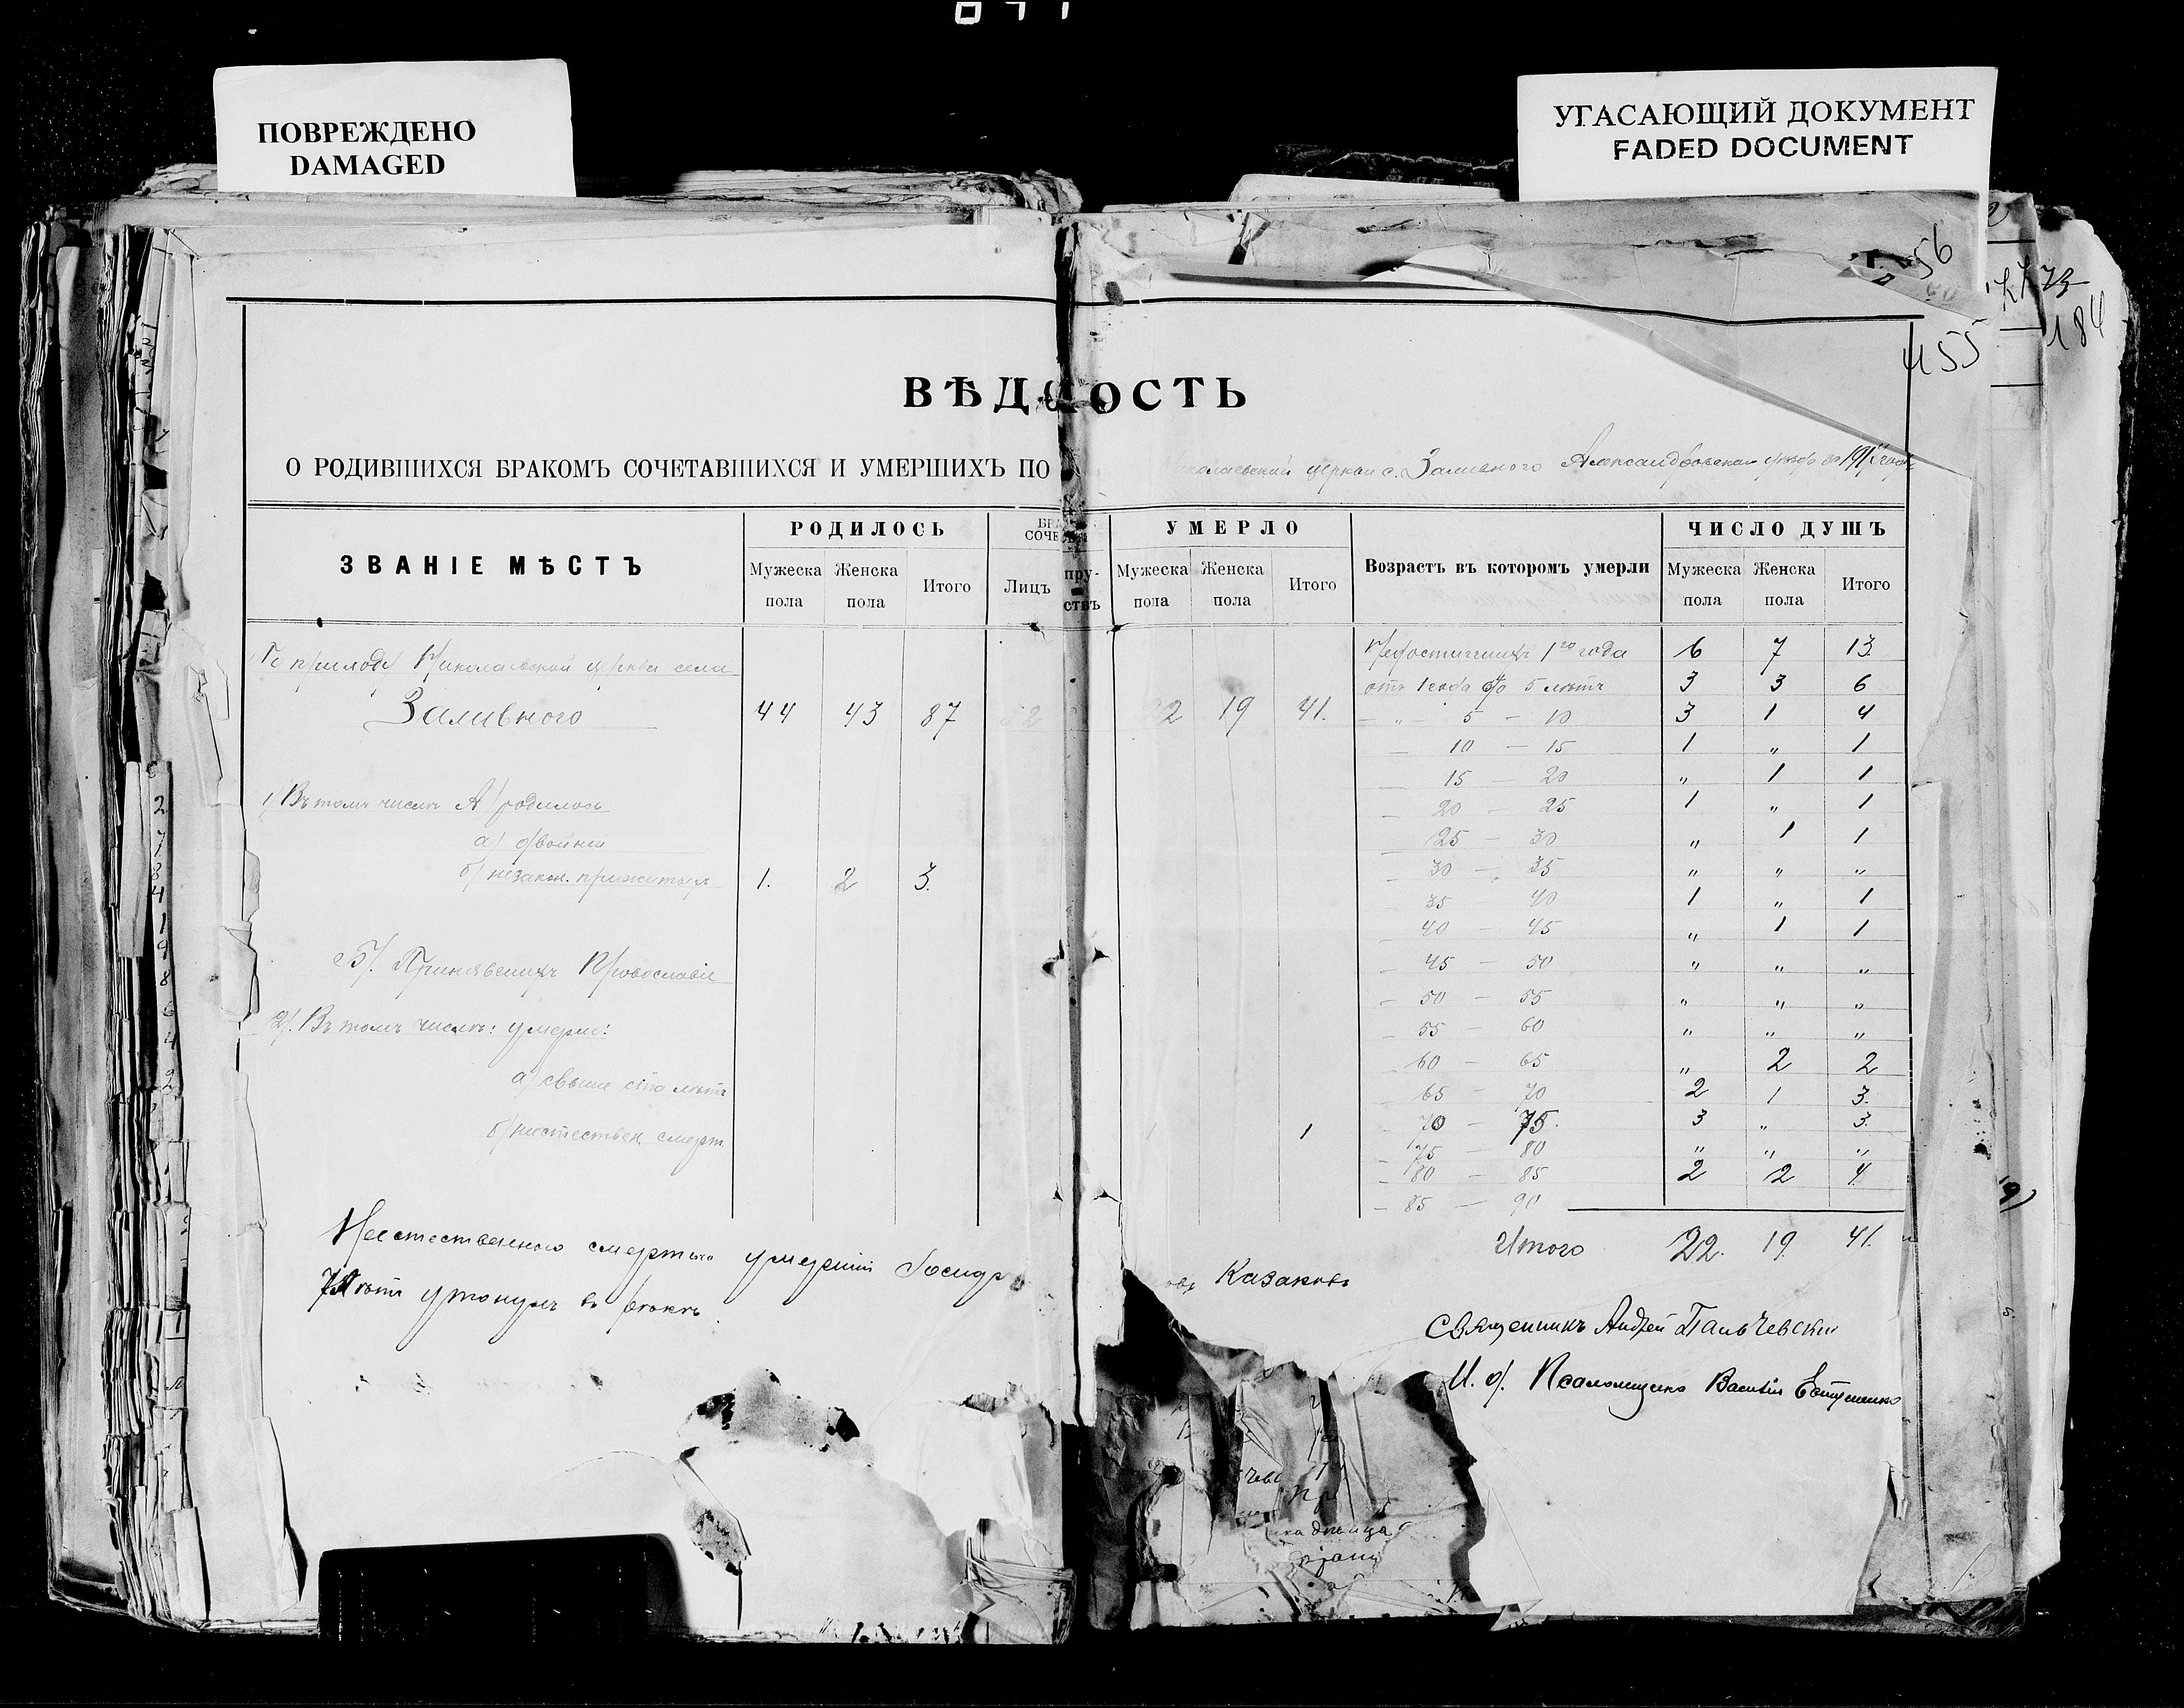 ПОВРЕЖДЕНО
DAMAGED
УГАСАЮЩИЙ ДОКУМЕНТ
FADED DOCUMENT
56
184
455
ВѢДОСТЬ
О РОДИВШИХСЯ БРАКОМЪ СОЧЕТАВШИХСЯ И УМЕРШИХЪ ПО церкви с. Заливного Александровскаго уѣзда за
ЗВАНІЕ МѢСТЪ РОДИЛОСЬ УМЕРЛО Возрастъ въ которомъ умерли ЧИСЛО ДУШЪ
Мужеска пола Женска пола Итого Лицъ Мужеска пола Женска пола Итого Мужеска пола Женска пола Итого
По приходу Николаевской церкви села
Заливного 44 43 87 22 19 41.
Недостигшихъ 1го года 6 7 13.
отъ 1 года до 5 лѣтъ 3 3 6
– " 5 – 10 3 1 4
– 10 – 15 1 " 1
– 15 – 20 " 1 1
– 20 – 25 1 " 1
– 25 – 30 " 1 1
– 30 – 35 " " "
– 35 – 40 1 " 1
– 40 – 45 " 1 1
– 45 – 50 " " "
– 50 – 55 " " "
– 55 – 60 " " "
– 60 – 65 " 2 2
– 65 – 70 2 1 3.
– 70 – 75. 3 " 3.
– 75 – 80 " " "
– 80 – 85 2 2 4.
– 85 – 90
1/ Въ томъ числѣ А/ родилось
а/ двойни
б/ незакон. прижитыхъ 1. 2 3.
Б/. Принявшихъ Православіе
2/. Въ томъ числѣ: умерло:
а/ свыше ста лѣтъ
б/ неестествен. смерт. 1 1
Итого 22. 19 41.
Неестественного смертью умершій Казаковъ
лѣтъ утонулъ въ рѣкѣ.
Священникъ Андрей Пальчевскій
И. д. Псаломщика Василій Евтушенко